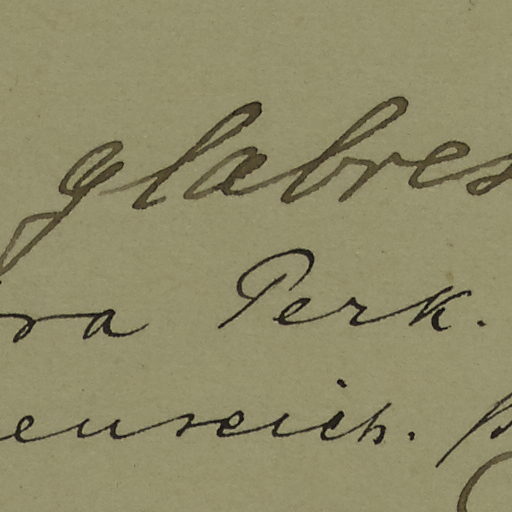 glabres
ra Perk.
enreich.